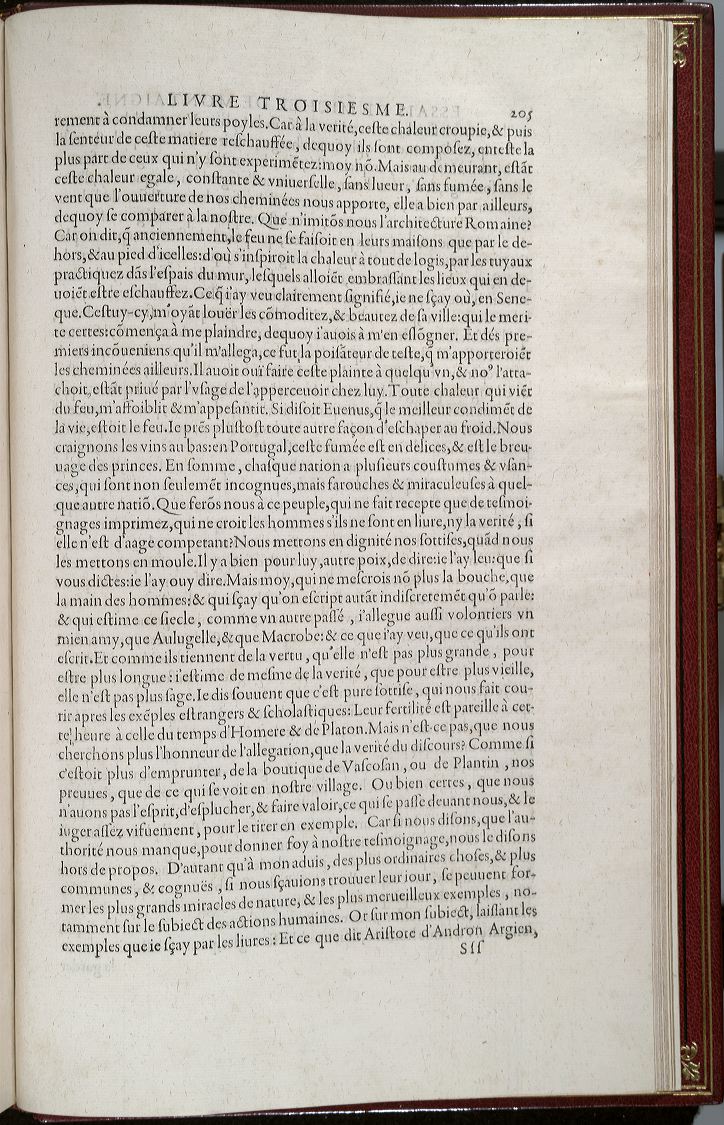 LIVRE TROISIESME. 205
rement à condamner leurs poyles. Car à la verité, ceſte chaleur croupie, & puis
la ſenteur de ceſte matiere reſchauffée, dequoy ils ſont compoſez, enteſte la
plus part de ceux qui n'y ſont experimẽtez: moy nõ. Mais au demeurant, eſtãt
ceſte chaleur egale, conſtante & vniuerſelle, ſans lueur, ſans fumée, ſans le
vent que l'ouuerture de nos cheminées nous apporte, elle a bien par ailleurs,
dequoy ſe comparer à la noſtre. Que n'imitõs nous l'architecture Romaine?
Car on dit, q̃ anciennement, le feu ne ſe faiſoit en leurs maiſons que par le de-
hors, & au pied d'icelles: d'où s'inſpiroit la chaleur à tout de logis, par les tuyaux
practiquez dãs l'eſpais du mur, leſquels alloiẽt embraſſant les lieux qui en de-
uoiẽt eſtre eſchauffez. Ce q̃ i'ay veu clairement ſignifié, ie ne ſçay où, en Sene-
que. Ceſtuy-cy, m'oyãt louër les cõmoditez, & beautez de ſa ville: qui le meri-
te certes: cõmença à me plaindre, dequoy i'auois à m'en eſlõgner. Et dés pre-
miers incõueniens qu'il m'allega, ce fut la poiſãteur de teſte, q̃ m'apporteroiẽt
les cheminées ailleurs. Il auoit ouï faire ceſte plainte à quelqu'vn, & noꝰ l'atta-
choit, eſtãt priué par l'vſage de l'apperceuoir chez luy. Toute chaleur qui viẽt
du feu, m'affoiblit & m'appeſantit. Si diſoit Euenus, q̃ le meilleur condimẽt de
la vie, eſtoit le feu. Ie prẽs pluſtoſt toute autre façon d'eſchaper au froid. Nous
craignons les vins au bas: en Portugal, ceſte fumée eſt en delices, & eſt le breu-
uage des princes. En ſomme, chaſque nation a pluſieurs couſtumes & vſan-
ces, qui ſont non ſeulemẽt incognues, mais farouches & miraculeuſes à quel-
que autre natiõ. Que ferõs nous à ce peuple, qui ne fait recepte que de teſmoi-
gnages imprimez, qui ne croit les hommes s'ils ne ſont en liure, ny la verité, ſi
elle n'eſt d'aage competant? Nous mettons en dignité nos ſottiſes, quãd nous
les mettons en moule. Il y a bien pour luy, autre poix, de dire: ie l'ay leu: que ſi
vous dictes: ie l'ay ouy dire. Mais moy, qui ne meſcrois nõ plus la bouche, que
la main des hommes: & qui ſçay qu'on eſcript autãt indiſcretemẽt qu'õ parle:
& qui eſtime ce ſiecle, comme vn autre paſſé, i'allegue auſſi volontiers vn
mien amy, que Aulugelle, & que Macrobe: & ce que i'ay veu, que ce qu'ils ont
eſcrit. Et comme ils tiennent de la vertu, qu'elle n'eſt pas plus grande, pour
eſtre plus longue: i'eſtime de meſme de la verité, que pour eſtre plus vieille,
elle n'eſt pas plus ſage. Ie dis ſouuent que c'eſt pure ſottiſe, qui nous fait cou-
rir apres les exẽples eſtrangers & ſcholaſtiques: Leur fertilité eſt pareille à cet-
te heure à celle du temps d'Homere & de Platon. Mais n'eſt-ce pas, que nous
cherchons plus l'honneur de l'allegation, que la verité du diſcours? Comme ſi
c'eſtoit plus d'emprunter, de la boutique de Vaſcoſan, ou de Plantin, nos
preuues, que de ce qui ſe voit en noſtre village. Ou bien certes, que nous
n'auons pas l'eſprit, d'eſplucher, & faire valoir, ce qui ſe paſſe deuant nous, & le
iuger aſſez vifuement, pour le tirer en exemple. Car ſi nous diſons, que l'au-
thorité nous manque, pour donner foy à noſtre teſmoignage, nous le diſons
hors de propos. D'autant qu'à mon aduis, des plus ordinaires choſes, & plus
communes, & cognuës, ſi nous ſçauions trouuer leur iour, ſe peuuent for-
mer les plus grands miracles de nature, & les plus merueilleux exemples, no-
tamment ſur le ſubiect des actions humaines. Or ſur mon ſubiect, laiſſant les
exemples que ie ſçay par les liures: Et ce que dit Ariſtote d'Andron Argien,
Sſſ